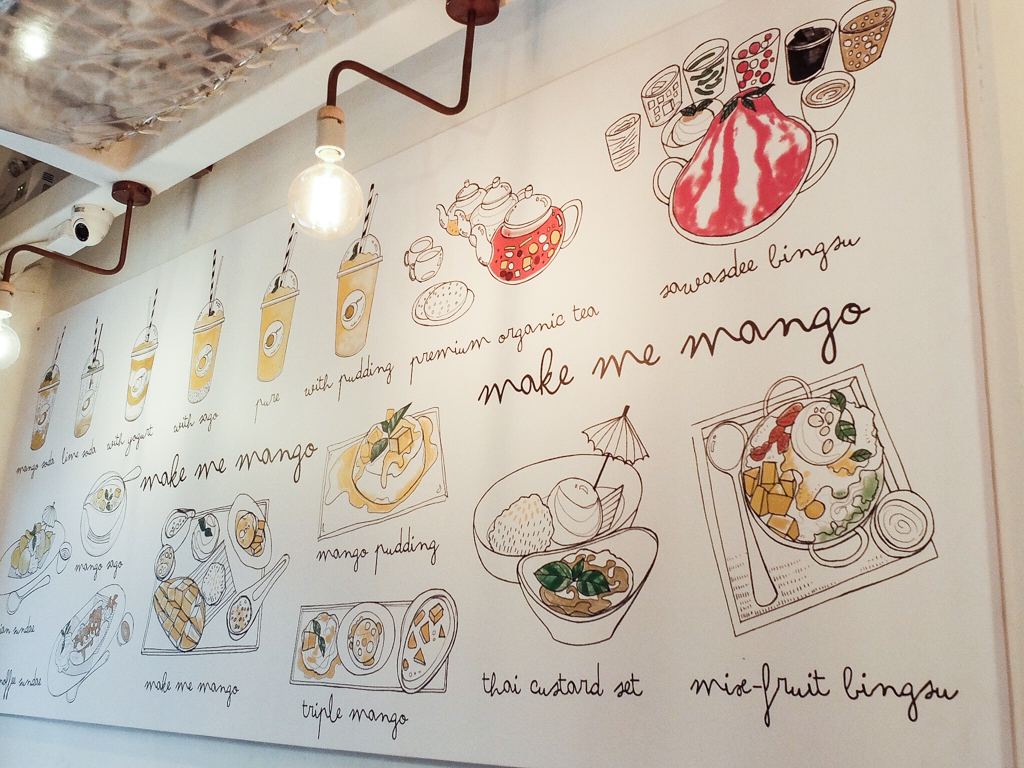 sawasdee bingsu
mango soda
lime soda
with yogurt
with sago
pure
with pudding
premium organic tea
make me mango
make me mango
mango sago
mango pudding
sundae
sundae
make me mango
triple mango
thai custard set
mix-fruit bingsu